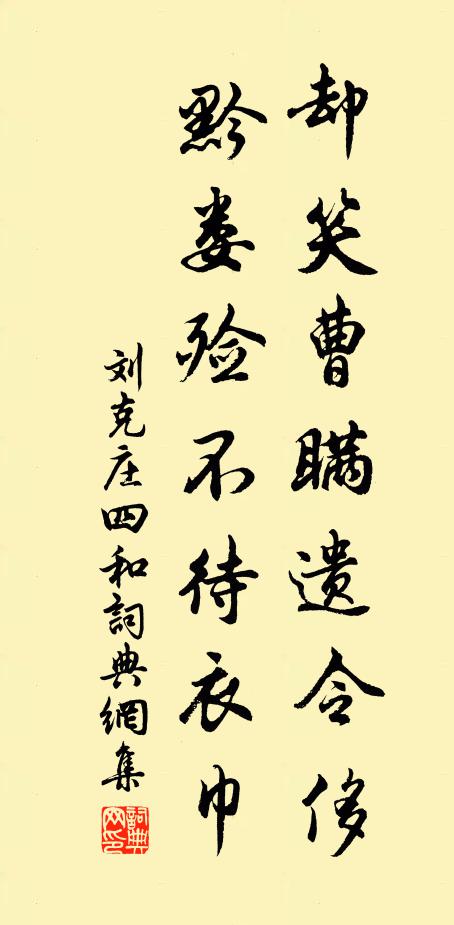 却笑曹瞒遗令侈
黔娄殓不待衣巾
刘克庄四和詞典網集
詞典网印